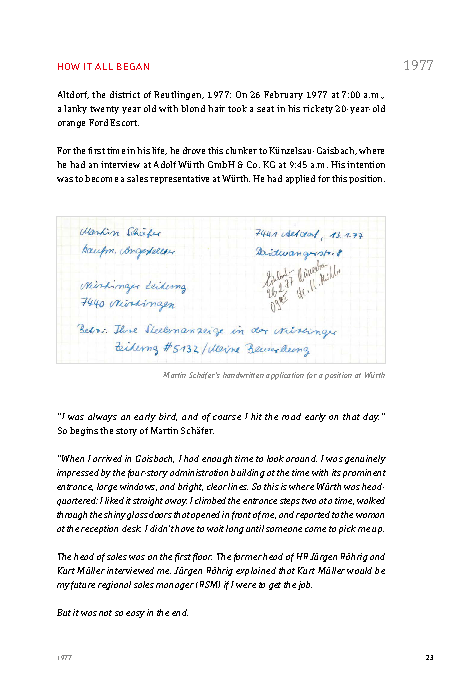 HOW IT ALL BEGAN
1977
Altdorf, the district of Reutlingen, 1977: On 26 February 1977 at 7:00 a.m.,
a lanky twenty year old with blond hair took a seat in his rickety 20-year-old
orange Ford Escort.
For the first time in his life, he drove this clunker to Künzelsau-Gaisbach, where
he had an interview at Adolf Würth GmbH & Co. KG at 9:45 a.m. His intention
was to become a sales representative at Würth. He had applied for this position.
Martin Schäfer
7441 Altdorf, 13.1.77
Kaufm. Angestellter
Nürtinger Zeitung
7440 Nürtingen
26.2.77
Betr.: Ihre Stellenanzeige in der Nürtinger
Zeitung #5132/Meine Bewerbung
Martin Schäfer's handwritten application for a position at Würth
"I was always an early bird, and of course I hit the road early on that day."
So begins the story of Martin Schäfer.
"When I arrived in Gaisbach, I had enough time to look around. I was genuinely
impressed by the four-story administration building at the time with its prominent
entrance, large windows, and bright, clear lines. So this is where Würth was head-
quartered: I liked it straight away. I climbed the entrance steps two at a time, walked
through the shiny glass doors that opened in front of me, and reported to the woman
at the reception desk. I didn't have to wait long until someone came to pick me up.
The head of sales was on the first floor. The former head of HR Jürgen Röhrig and
Kurt Müller interviewed me. Jürgen Röhrig explained that Kurt Müller would be
my future regional sales manager (RSM) if I were to get the job.
But it was not so easy in the end.
1977
23